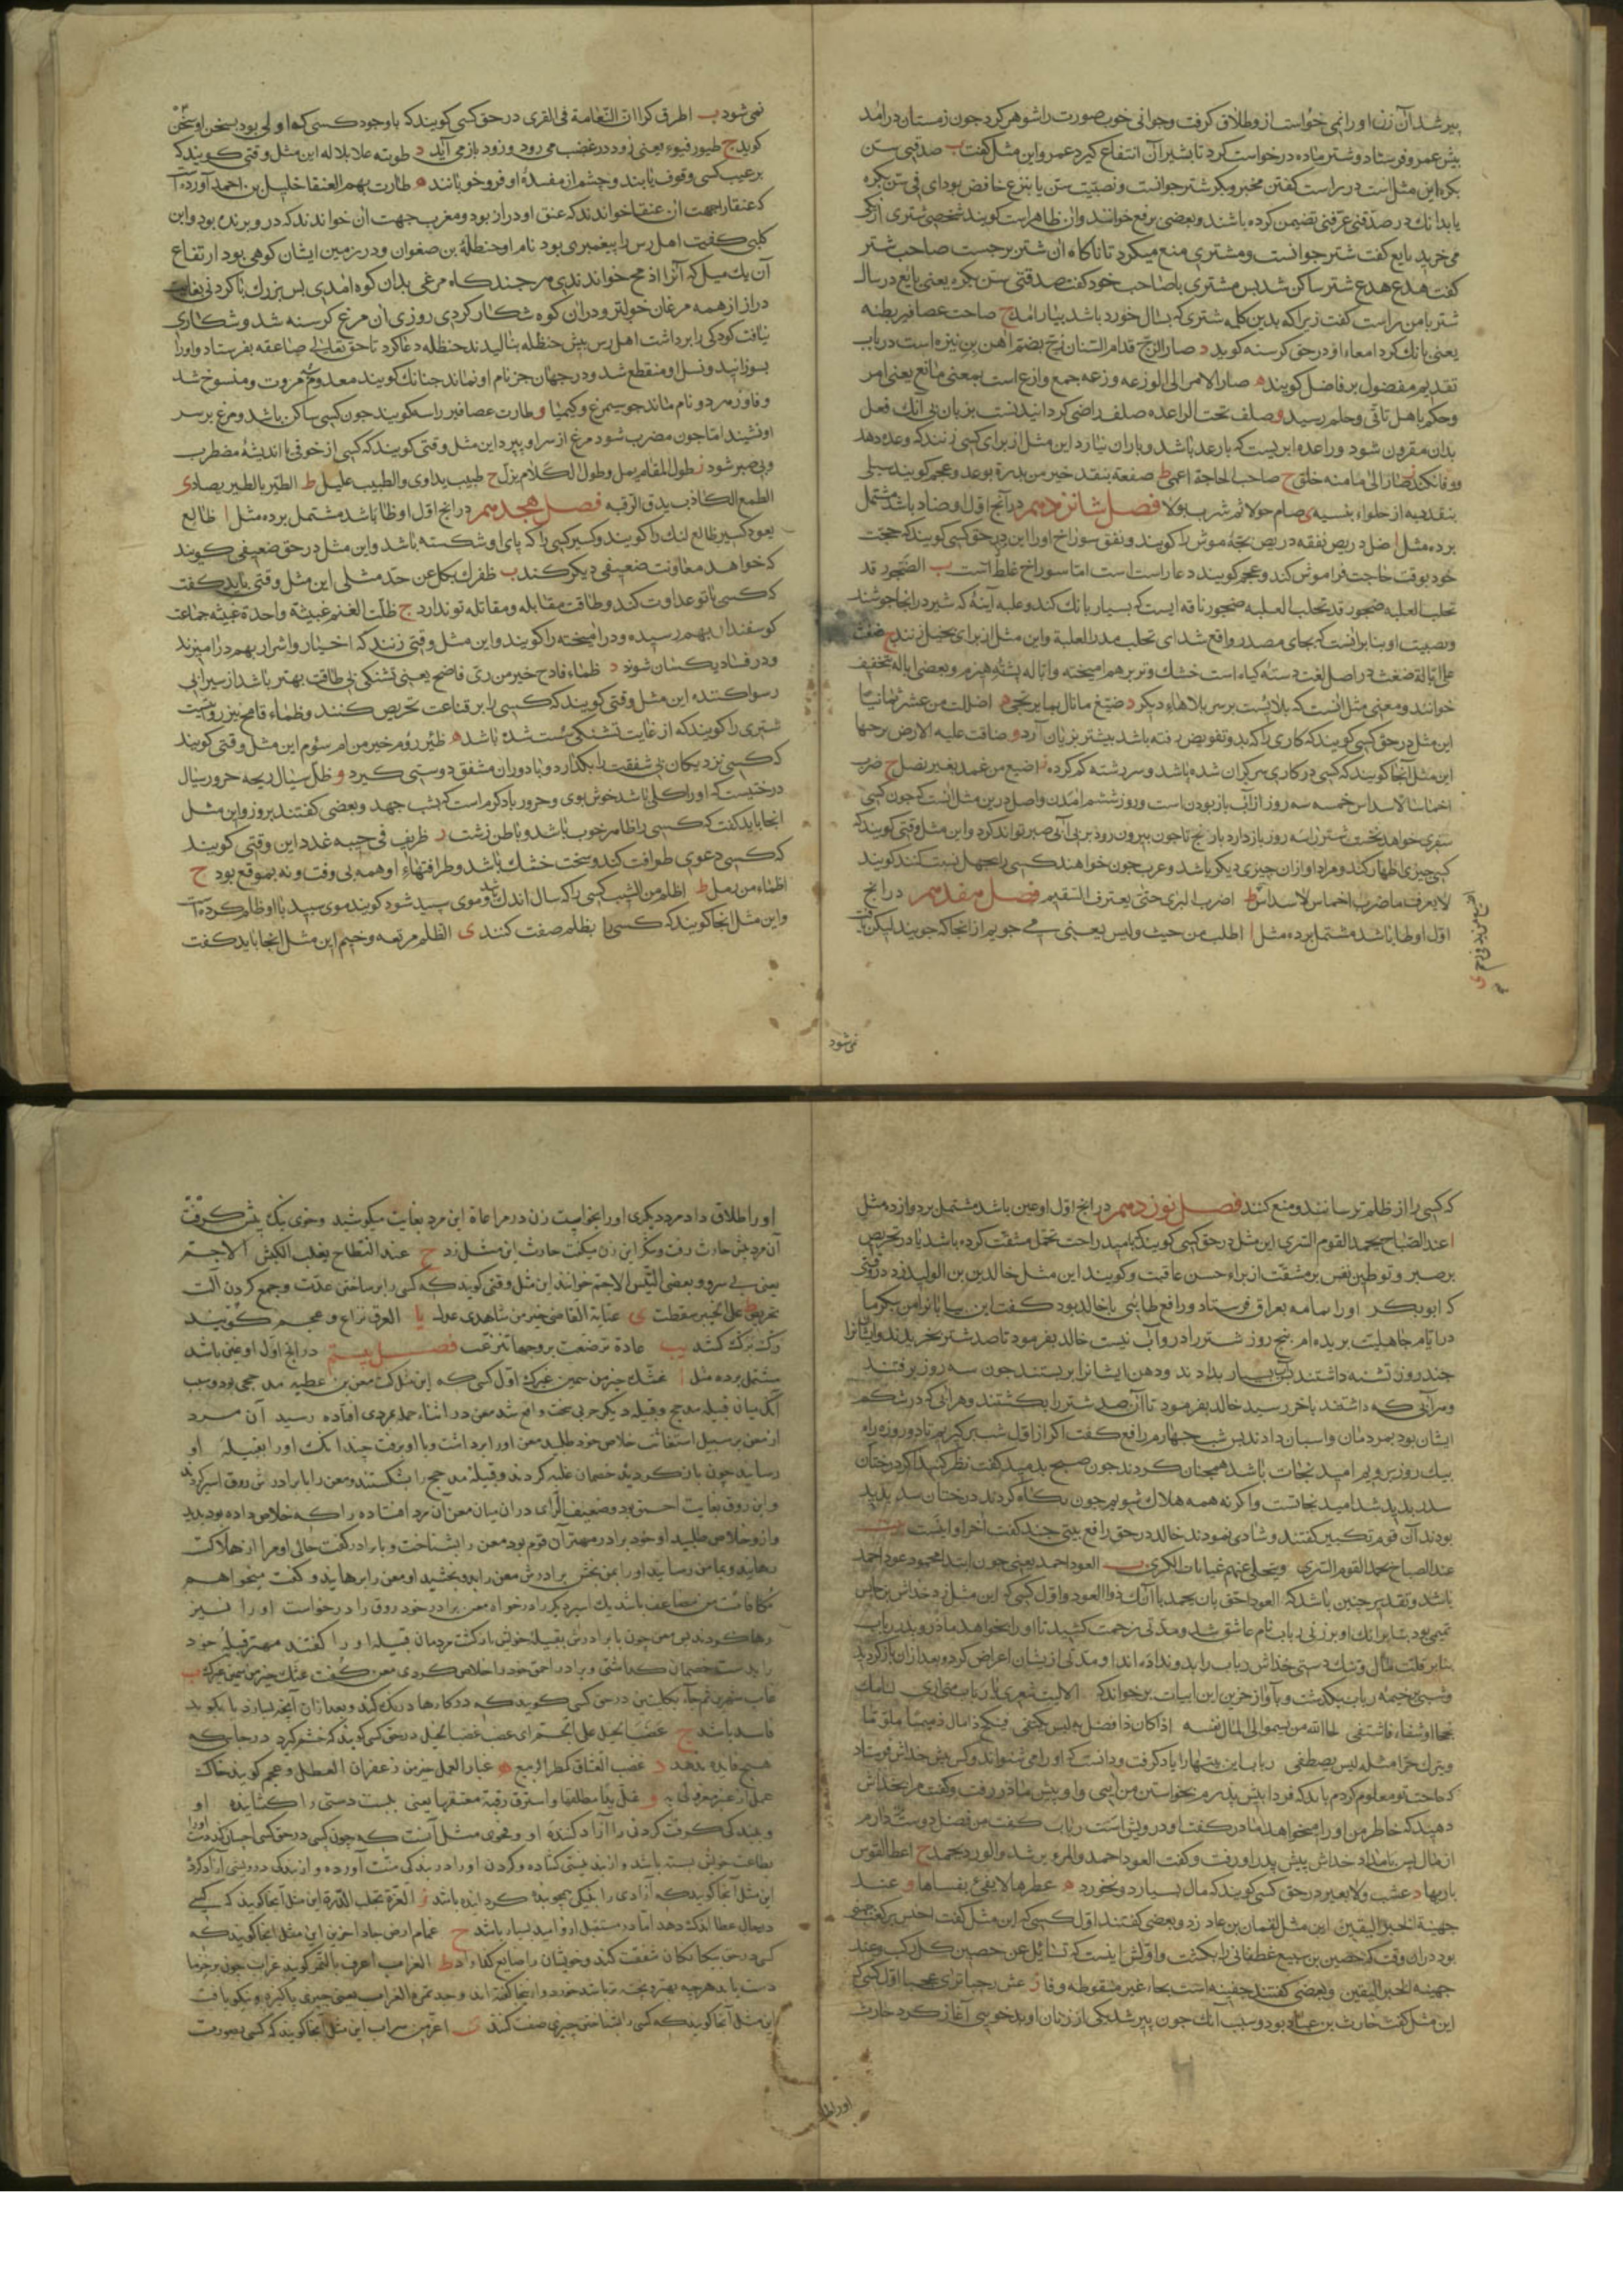 پیر شد آن زن او را نمی خواست از و طلاق گرفت و جوانی خوب صورت را شوهر کرد جون زمستان در آمد
پیش عمرو فرستاد و شتر ماده درخواست کرد تا بشیر آن انتفاع گیرد عمرو این مثل گفت ب صدقنی سن
بکره این مثل است در راست گفتن مخبر و بکر شتر جوانست و نصبیت سن یا بنزع خافض بود ای فی سن بکره
یا بدانك در صدقنی عرفنی تضمین کرده باشند و بعضی برفع خوانند و آن ظاهر است کویند شخصی شتری از یکی
می خرید بایع گفت شتر جوانست و مشتری منع میکرد تا ناکاه آن شتر برجست صاحب شتر
گفت هدع هدع شتر ساکن شد پس مشتری با صاحب خود گفت صدقنی سن بکره یعنی بایع در سال
شتر با من راست گفت زیرا که بدین کلمه شتری که بسال خورد باشد بیارامد ج صاحت عصافیر بطنه
یعنی بانك کرد امعاء او در حق کرسنه کویند د صار الزج قدام السنان زج بضم آهن بن نیزه است در باب
تقدیم مفضول بر فاضل کویند ه صار الامر الی الوزعه وزعه جمع وازع است بمعنی مانع یعنی امر
و حکم با اهل تانی و حلم رسید و صلف تحت الراعده صلف راضی کردانیدنست بزبان بی آنك فعل
بدان مقرون شود و راعده ابریست که با رعد باشد و باران نیارد این مثل از برای کسی زنند که وعده دهد
و وفا نکند ز صار الی ما منه خلق ح صاحب الحاجة اعمی ط صفعة بنقد خیر من بدرة بوعد و عجم کویند سیلی
بنقد به از حلواء بنسیه ی صام حولا ثم شرب بولا فصل شانزدهم در آنج اول او ضاد باشد مشتمل
بر ده مثل ا ضل دریص نفقه دریص بچه موش را کویند و نفق سوراخ او را این در حق کسی کویند که حجت
خود بوقت حاجت فراموش کند و عجم کویند دعا راست است اما سوراخ غلط است ب الضجور قد
تحلب العلبه ضجور قد تحلب العلبه ضجور ناقه ایست که بسیار بانك کند و علبه آنیه که شیر در آنجا جوشند
و نصبیت او بنا بر آنست که بجای مصدر واقع شد ای تحلب مدر العلبة و این مثل از برای بخیل زنند ج ضغث
علی ابالة ضغث در اصل لغت دسته کیاه است خشك و تر بر هم آمیخته و ابالة پشتۀ هیزم و بعضی اباله بتخفیف
خوانند و معنی مثل آنست که بلائیست بر سر بلاهاء دیکر د ضیع ما نال بما یرتجی ه اضللت من عشر ثمانیا
این مثل در حق کسی کویند که کاری را که بدو تفویض رفته باشد بیشتر بزیان آرد و ضاقت علیه الارض برحبها
این مثل آنجا کویند که کسی در کاری سرکران شده باشد و سر رشته کم کرده ز اضیع من غمد بغیر نصل ح ضرب
اخماسا لاسداس خمسه سه روز از آب باز بودن است و روز ششم آمدن و اصل درین مثل آنست که جون کسی
سفری خواهد نخست شتر را سه روز باز دارد با پنج تا جون بیرون رود بر بی آبی صبر تواند کرد و این مثل وقتی کویند که
کسی چیزی اظهار کند و مراد او از آن چیزی دیکر باشد و عرب جون خواهند کسی را بجهل نسبت کنند کویند
لا یعرف ما ضرب اخماس لاسداس ط اضرب البری حتی یعترف السقیم فصل هفدهم در آنج
اول او طا باشد مشتمل بر ده مثل ا اطلب من حیث ولیس یعنی می جویم از آنجا که جویند لیکن یافت
نمی شود
نمی شود ب اطرق کرا ان النعامة فی القری در حق کسی کویند که با وجود کسی که او اولی بود بسخن او سخن
کوید ج طیور فیوء یعنی زود در غضب می رود و زود باز می آید د طویته علا بلاله این مثل وقتی کویند که
بر عیب کسی وقوف یابند و چشم از مفسدۀ او فرو خوبانند ه طارت بهم العنقا خلیل بن احمد آورده است
که عنقا را جهت آن عنقا خوانند که عنق او دراز بود و مغرب جهت آن خوانند که در و برنده بود و ابن
کلبی گفت اهل رس را پیغمبری بود نام او حنظلة بن صفوان و در زمین ایشان کوهی بود ارتفاع
آن یك میل که آنرا دمخ خواندندی هر جند کاه مرغی بدان کوه آمدی بس بزرك با کردنی بغایت
دراز از همه مرغان خوبتر و در آن کوه شکار کردی روزی آن مرغ کرسنه شد و شکاری
نیافت کودکی را برداشت اهل رس پیش حنظله بنالیدند حنظله دعا کرد تا حق تعالی صاعقه بفرستاد و او را
بسوزانید و نسل او منقطع شد و در جهان جز نام او نماند چنانك کویند معدوم شد مروت و منسوخ شد
وفا وز هر دو نام ماند جو سیمرغ و کیمیا و طارت عصافیر راسه کویند جون کسی ساکن باشد و مرغ بر سر
او نشیند اما جون مضطرب شود مرغ از سر او بپرد این مثل وقتی کویند که کسی از خوفی یا اندیشۀ مضطرب
و بی صبر شود ز طول المقام یمل و طول الکلام یزل ح طبیب یداوی و الطبیب علیل ط الطیر بالطیر یصاد ی
الطمع الکاذب یدق الرقبه فصل هجدهم در آنج اول او ظا باشد مشتمل بر ده مثل ا ظالع
یعود کسیر ظالع لنك را کویند و کسیر کسی را که پای او شکسته باشد و این مثل در حق ضعیفی کویند
که خواهد معاونت ضعیفی دیکر کند ب ظفرك یکل عن حد مثلی این مثل وقتی باید گفت
که کسی با تو عداوت کند و طاقت مقابله و مقاتله تو ندارد ج ظلت الغنم عبیثة واحدة عبیثه جماعت
کوسفندان بهم رسیده و در آمیخته را کویند و این مثل وقتی زنند که اخیار و اشرار بهم در آمیزند
و در فساد یکسان شوند د ظماء قادح خیر من ری فاضح یعنی تشنکی بی طاقت بهتر باشد از سیرابی
رسوا کننده این مثل وقتی کویند که کسی را بر قناعت تحریص کنند و ظماء قامح نیز روایتست
شتری را کویند که از غایت تشنکی سست شده باشد ه ظئر رؤم خیر من ام سؤم این مثل وقتی کویند
که کسی نزدیکان بی شفقت را بکذارد و با دوران مشفق دوستی کیرد و ظل سیال ریحه حرور سیال
درختیست که او را کلی باشد خوش بوی و حرور باد کرم است که بشب جهد و بعضی گفتند بروز و این مثل
آنجا باید گفت که کسی را ظاهر خوب باشد و باطن زشت ز ظریف فی جیبه غدد این وقتی کویند
که کسی دعوی ظرافت کند و سخت خشك باشد و ظرافتهاء او همه بی وقت و نه بموقع بود ح
اظماء من رمل ط اظلم من الشیب کسی را که سال اندك باشد و موی سپید شود کویند موی سپید با او ظلم کرده است
و این مثل آنجا کویند که کسی را بظلم صفت کنند ی الظلم مرتعه وخیم این مثل آنجا باید گفت
که کسی را از ظلم ترسانند و منع کنند فصل نوزدهم در آنج اول او عین باشد مشتمل بر دوازده مثل
ا عند الصباح یحمد القوم السری این مثل در حق کسی کویند که بامید راحت تحمل مشقت کرده باشد یا در تحریص
بر صبر و توطین نفس بر مشقت از براء حسن عاقبت و کویند این مثل خالد بن الولید زد در وقتی
که ابوبکر او را از یمامه بعراق فرستاد و رافع طایی با خالد بود گفت این بیابانرا من یکرما
در ایام جاهلیت بریده ام پنج روز شتر را در و آب نیست خالد بفرمود تا صد شتر بخریدند و ایشانرا
جند روز تشنه داشتند پس آب بسیار بدادند و دهن ایشانرا بربستند جون سه روز برفتند
و هر آبی که داشتند بآخر رسید خالد بفرمود تا آن صد شتر را بکشتند و هر آبی که در شکم
ایشان بود بمردمان و اسبان دادند پس شب جهارم رافع گفت اکر از اول شب کیر بود تا دو روزه راه
بیك روز برویم امید نجات باشد همچنان کردند جون صبح بدمید گفت نظر کنید اکر درختان
سدر بدید شد امید نجاتست و اکر نه همه هلاك شویم جون نکاه کردند درختان سدر بدید
بودند آن قوم تکبیر گفتند و شادی نمودند خالد در حق رافع بیتی جند گفت آخر او اینست بیت
عند الصباح یحمد القوم السری وینجلی عنهم غیابات الکری ب العود احمد یعنی جون ابتدا محمود عود احمد
باشد و تقدیر جنین باشد که العود احق بان یحمد یا آنك ذو العود و اول کسی که این مثل زد خداش بن حابس
تمیمی بود بنا بر آنك او بر زنی رباب نام عاشق شد و مدتی زحمت کشید تا او را بخواهد مادر و پدر رباب
بنا بر قلت مال و تنك دستی خداش رباب را بدو ندادند او مدتی از یشان اعراض کرد و بعد از آن باز کردید
و شبی بر خیمه رباب بکذشت و بآواز حزین این ابیات برخواند که الا لیت شعری یا رباب متی اری لنا منك
نجحا او شفاء فاشتفی لحا الله من یسمو الی المال نفسه اذا کان ذا فضل به لیس یکتفی فینکح ذا مال ذمیما ملوما
ویترك حرا مثله لیس یصطفی رباب این بیتها را یاد کرفت و دانست که او را می شنواند و کس پیش خداش فرستاد
که حاجت تو معلوم کردم باید که فردا پیش پدرم بخواستن من آیی و او پیش مادر رفت و گفت مرا بخداش
دهید که خاطر من او را میخواهد مادر گفت او درویش است رباب گفت من فضل دوست دارم
از مال پس بامداد خداش پیش پدر او رفت و گفت العود احمد والمرء یرشد والورد یحمد ج اعط القوس
باریها د عشب ولا بعیر در حق کسی کویند که مال بسیار دارد و نخورد ه عطرها لا یفئ بفساها و عند
جهینة الخبر الیقین این مثل لقمان بن عاد زد و بعضی گفتند اول کسی که این مثل گفت اخنس بن کعب جهنی
بود در آن وقت که حصین بن سبیع غطفانی را بکشت و اولش اینست که تسائل عن حصین کل رکب وعند
جهینة الخبر الیقین و بعضی گفتند جفینه است بحاء غیر منقوطه و فا ز عش رجبا تر عجبا اول کسی که
این مثل گفت حارث بن عباد بود و سبب آنك جون پیر شد یکی از زنان او بد خویی آغاز کرد حارث
او را طلا
او را طلاق داد مردی دیگری او را بخواست زن در مراعاة این مرد بغایت میکوشید و خوی نیك پیش گرفت
آن مرد پیش حارث رفت و شکر این زن میگفت حارث این مثل زد ح عند النطاح یغلب الکبش الاجم
یعنی بی سرو و بعضی التیس الاجم خوانند این مثل وقتی کویند که کسی را بر ساختن عدت و جمع کردن آلت
تحریض ط علی الخبیر سقطت ی عنایة القاضی خیر من شاهدی عدل یا العرق نزاع و عجم کویند
رك بزرك کشد یب عادة ترضعت بروحها تنزعت فصل بیستم در آنج اول او غین باشد
مشتمل بر ده مثل ا غثك خیر من سمین غیرك اول کسی که این مثل گفت معن بن عطیه مذحجی بود و سبب
آنك میان قبیله مذحج و قبیله دیگر حربی سخت واقع شد معن در اثناء حمله بمردی افتاده رسید آن مرد
از معن بر سبیل استغاثت خلاص خود طلبید معن او را برداشت و با او برفت چندانك او را بقبیلۀ او
رسانید چون باز کردید خصمان غلبه کردند و قبیلۀ مذحج را بشکستند و معن را با برادرش روق اسیر کردند
و این روق بغایت احمق بود و ضعیف الرای در آن میان معن آن مرد افتاده را که خلاص داده بود بدید
و ازو خلاص طلبید او خود برادر مهتر آن قوم بود معن را بشناخت و با برادر گفت حالی او مرا از هلاکت
رهانید و بمأمن رسانید او را بمن بخش برادرش معن را بدو بخشید او معن را برهانید و گفت میخواهم
مکافات من مضاعف باشد یك اسیر دیگر را درخواه معن برادر خود روق را درخواست او را نیز
رها کردند پس معن چون با برادرش بقبیلۀ خویش باز کشت مردمان قبیله او را گفتند مهتر قبیلۀ خود
را بدست خصمان گذاشتی و برادر احمق خود را خلاص کردی معن گفت غثك خیر من سمین غیرك ب
غاب شهرین ثم جاء بکلبتین در حق کسی کویند که در کارها درنك کند و بعد از آن آنچه بیارد یا بکوید
فاسد باشد ج غضب الخیل علی اللجم ای غضب غضب الخیل در حق کسی کویند که خشم کیرد در جایی که
هیچ فایده ندهد د غضب العشاق کمطر الربیع ه غبار العمل خیر من زعفران العطل و عجم کویند خاك
عمل از عبیر معزولی به و غل یدا مطلقها و استرق رقبة معتقها یعنی ببست دستی را کشاینده او
و ببندکی گرفت گردنی را آزاد کنندۀ او و فحوی مثل آنست که چون کسی در حق کسی احسان کند او را
بطاعت خویش بسته باشد و از بند نیستی کشاده و کردن او را در بندکی منت آورده و از بندکی درویشی آزاد کرده
این مثل آنجا کویند که آزادی را بنیکی بنده کردانیده باشد ز الغرة تجلب الدرة این مثل آنجا کویند که کسی
در حال عطا اندك دهد اما در مستقبل ازو امید بسیار باشد ح غمام ارض جاد آخرین این مثل آنجا کویند که
کسی در حق بیگانگان شفقت کند و خویشان را ضایع گذارد ط الغراب اعرف بالتمر کویند غراب چون بر خرما
دست یابد هرچه بهتر و پخته تر باشد خورد و از اینجا گفته اند وجد تمرة الغراب یعنی چیزی پاکیزه و نیکو یافت
این مثل آنجا کویند که کسی را بشناختن چیزی صفت کنند ی اغر من سراب این مثل آنجا کویند که کسی بصورت